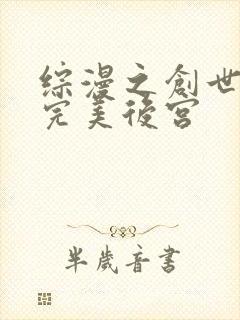 综漫之創世
完美後宮
半歲音書